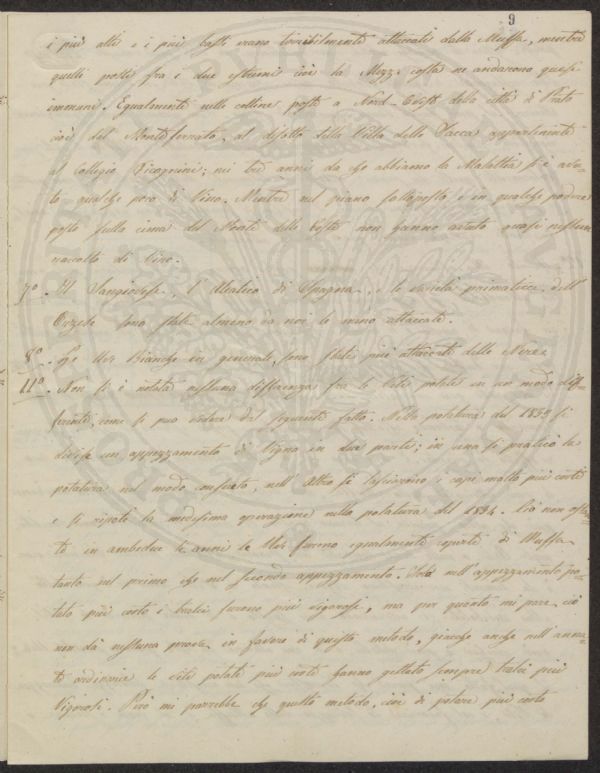 9
i più alti e i più bassi erano terribilmente attaccati dalla Muffa, mentre
quelli posti fra i due estremi cioè la Mezza costa ne andarono quasi
immuni. Egualmente nelle colline poste a Nord-Ovest della città di Prato
cioè del Monteferrato, al disotto della Villa dello Sacca appartenente
al Collegio Cicognini; nei tre anni da che abbiamo la Malattia si è avu-
to qualche poco di Vino. Mentre nel piano sottoposto e in qualche podere
posto sulla cima del Monte delle Coste non hanno avuto quasi nessun
raccolto di Vino.
7º. Il Sangioveto, l'Aleatico di Spagna, e le varietà primaticce dell'
sono state almeno da noi le meno attaccate.
8º. Le Uve Bianche in generale, sono state più attaccate delle Nere.
11º. Non si è notata nessuna differenza fra le Viti potate in un modo dif-
ferente, come si può vedere dal seguente fatto. Nella potatura del 1853 si
divise un appezzamento di Vigna in due parti; in una si praticò la
potatura nel modo consueto, nell'Altro si lasciarono i capi molto più corti
e si ripetè la medesima operazione nella potatura del 1854. Ciò non ostan-
te in ambedue le anni le Uve furono egualmente coperte di Muffa
tanto nel primo che nel secondo appezzamento. nell'appezzamento po-
tato più corto i tralci furono più vigorosi, ma per quanto mi pare ciò
non dà nessuna prova in favore di questo metodo, giacchè anche nell'anna-
te ordinarie le viti potate più corte hanno gettato sempre tralci più
Vigorosi. Però mi parrebbe che questo metodo, cioè di potare più corto